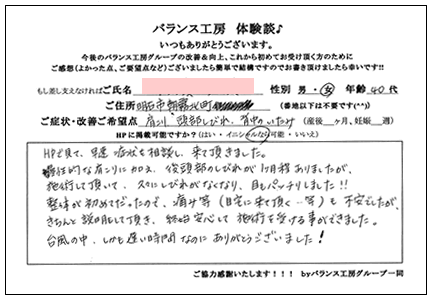 バランス工房 体験談♪
いつもありがとうございます。
今後のバランス工房グループの改善&向上、これから初めてお受け頂く方のために
ご感想(よかった点、ご要望点など)ございましたら簡単で結構ですのでお書き頂けましたら幸いです!!
もし差し支えなければご氏名 性別 男・女 年齢 40代
ご住所 明石市朝霧北町 (番地以下は不要です(^^))
ご症状・改善ご希望点 肩こり、頭部しびれ、背中のいたみ (産後 ヶ月、妊娠 週)
HPに掲載可能ですか?(はい・イニシャルなら可能・いいえ)
HPを見て、早速症状を相談し、来て頂きました。
慢性的な肩こりに加え、後頭部のしびれが1ヶ月程ありましたが、
施術して頂いて、スグにしびれがなくなり、目もパッチリしました!!
整体が初めてだったので、痛み等(自宅に来て頂く…等)も不安でしたが、
きちんと説明して頂き、終始安心して施術を受ける事ができました。
台風の中、しかも遅い時間なのにありがとうございました!
ご協力感謝いたします!!! byバランス工房グループ一同